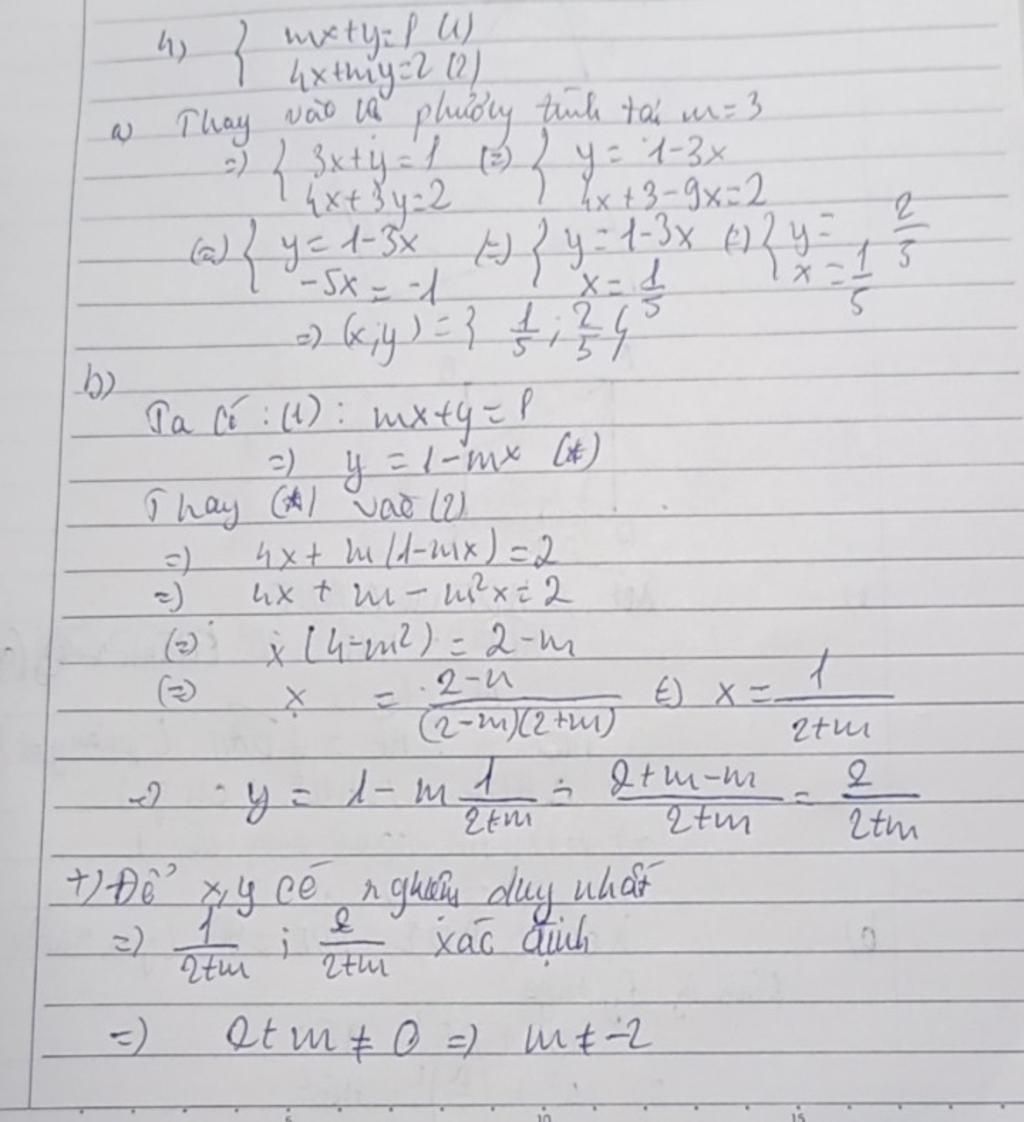 4) { mx+y=1 (1)
4x+my=2 (2)
a) Thay vào hệ phương trình tại m=3
=) { 3x+y=1 (=) { y= 1-3x
4x+3y=2 4x+3-9x=2
(=) { y=1-3x (=) { y=1-3x (=) { y= 2/5
-5x=-1 x=1/5 x=1/5
=) (x;y)={ 1/5 ; 2/5 }
b)
Ta có : (1) : mx+y=1
=) y=1-mx (*)
Thay (*) vào (2)
=) 4x+ m(1-mx)=2
=) 4x + m - m²x=2
(=) x(4-m²) = 2-m
(=) x = 2-m/(2-m)(2+m) (=) x=1/2+m
=) y = 1-m 1/2+m = 2+m-m/2+m = 2/2+m
+) Để x,y có nghiệm duy nhất
=) 1/2+m ; 2/2+m xác định
=) 2+m≠0 =) m≠-2
5 10 15